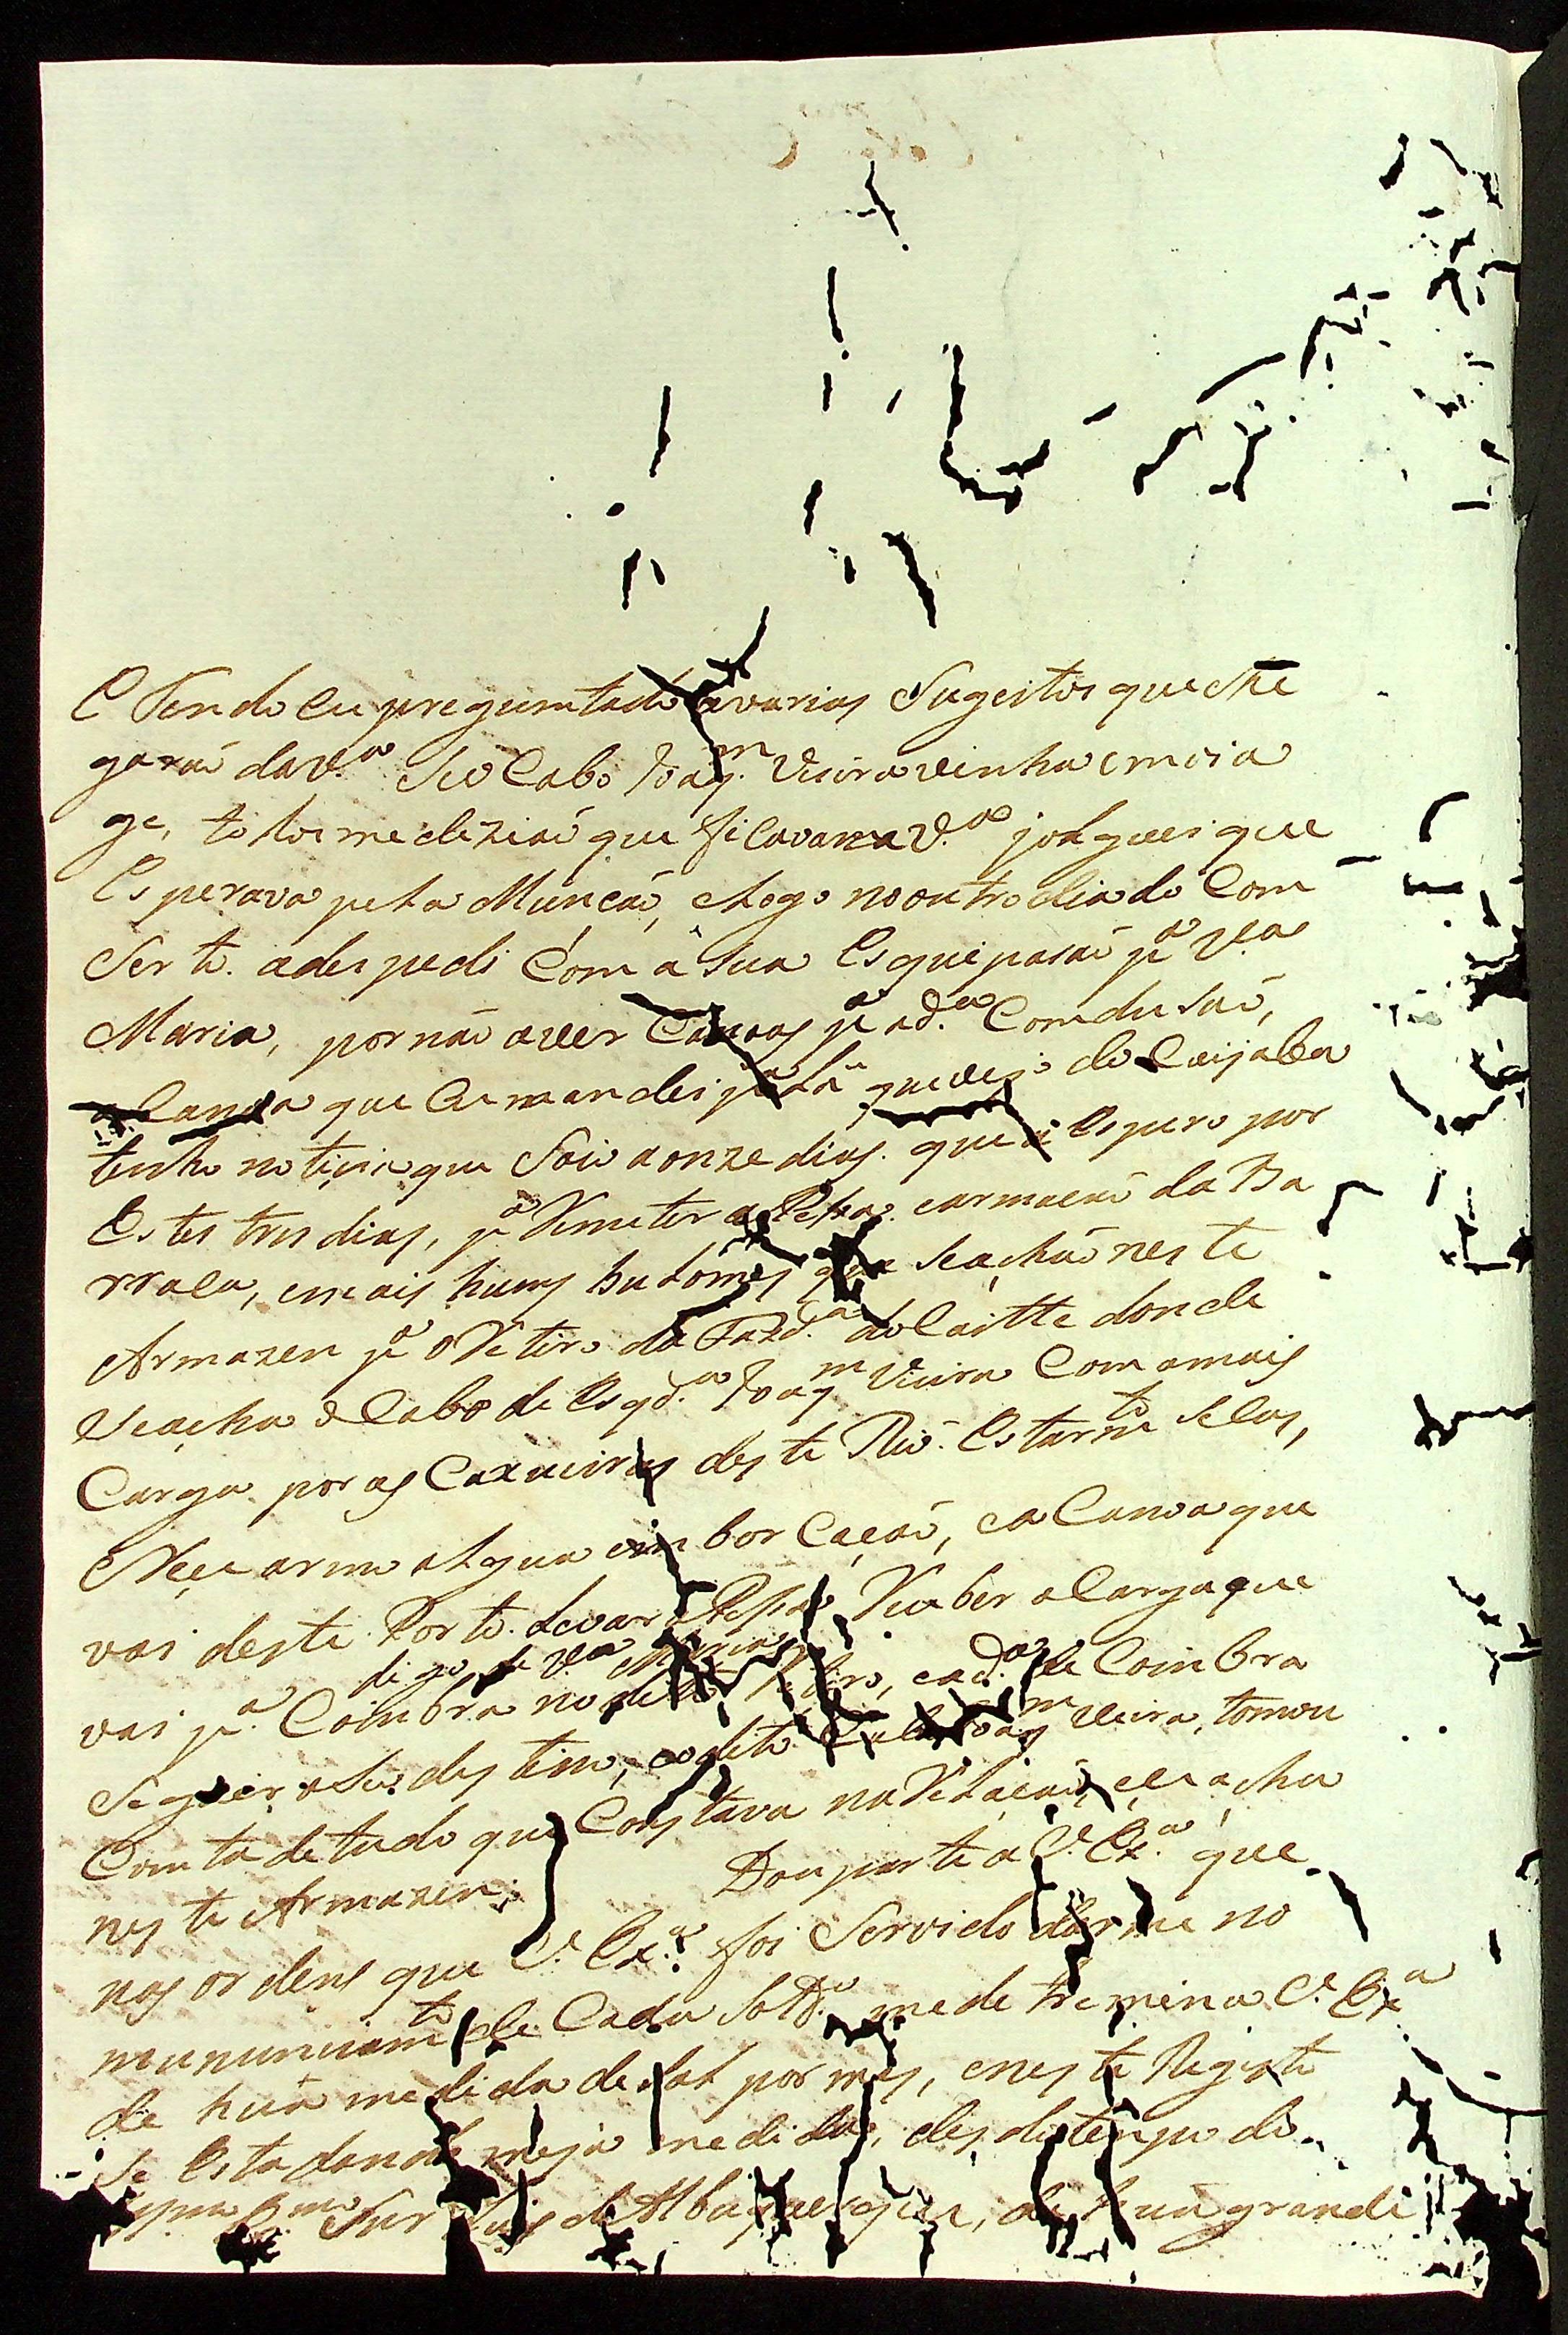 E Sendo Eu preguntado a varios Sugeitos que Che
garaõ da V.ª Se o Cabo Joaq.m Vieira vinha em via
ge, todos me deziaõ que ficava na V.ª jolguei que
Esperava pella Munçaõ, e logo no outro dia do Com
Serto. a despedi Com â Sua Esquipasaõ p.ª V.ª
Maria, por naõ aver Canoas p.ª a d.ª Comdusaõ,
a Canoa que Eu mandei p.ª Lâ que veyo do Cuijaba
tenho noticia que Saio a onze dias. que a Espero por
Estes tres dias, p.ª Remeter a Pessa. e armaçaõ da Ba
rraca, e mais huns bulómes que Seachaõ neste
Armazen p.ª o Retiro da Fazd.ª do Caitte donde
Seacha o Cabo de Esqd.ª Joaq.m Vieira Com a mais
Carga por as Caxueiras deste Rio. Estarm.to Secas,
e Reciarme algua embor Caçaõ, e a Canoa que
vai deste Porto. Levar a Pessa. Receber a Carga que
digo de V.ª Maria
vai p.ª Coimbra no dito Retiro, e a d.ª de Coimbra
Seguir o Seu destino, e o dito Cabo Joaq.m Vieira, tomou
Comta de tudo que Constava na Relaçaõ, e Seacha
neste Armazen.
Dou parte a V. Ex.ª que
nas ordens que V. Ex.ª foi Servido darme no
mununiciam.to de Cada Sold.º me detremina V. Ex.ª
de huã medida de sal por mes, e neste Registo
Se Esta dando meya medida, des do tempo do
Sur Luis de Albaquerque, de huã grande